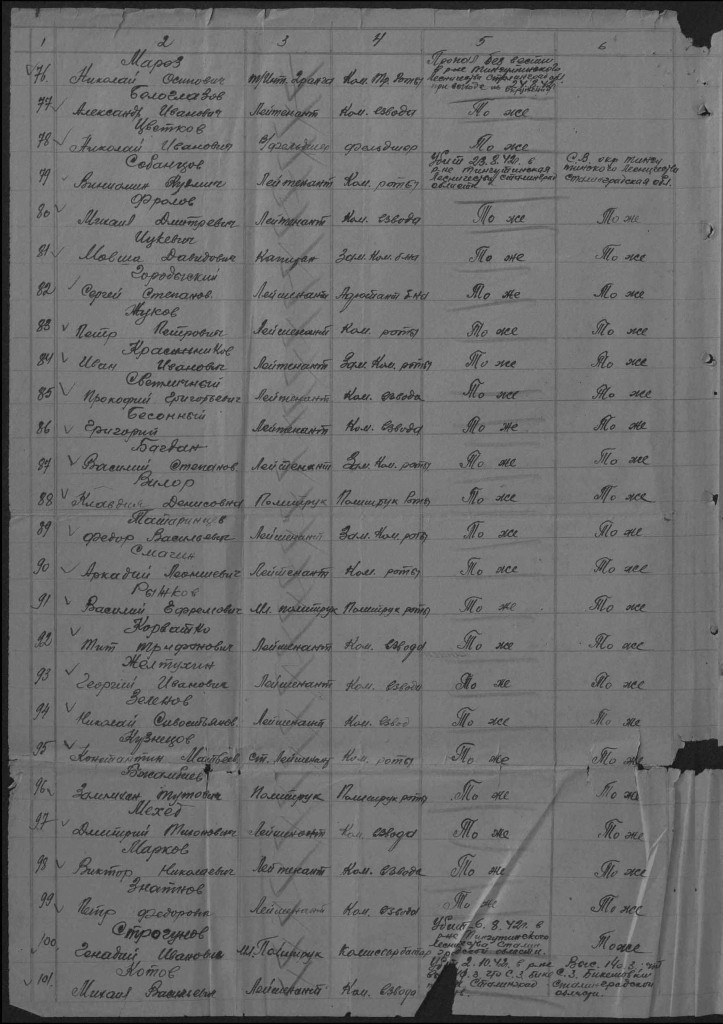 1 2 3 4 5 6
Мароз
76. Николай Осипович т/инт. 2 ранга Ком. тр. роты Пропал без вести в р-не Тингутинского лесничества Сталинград. обл. при выходе из окружения
Белоглазов
77 Александр Иванович Лейтенант Ком. взвода То же
Цветков
78 Николай Иванович в/фельдшер фельдшер То же
79 Лейтенант Ком. роты Убит 23.8.42г. в р-не Тингутинская лесничества Сталинград области С.В. окр. Тингутинского лесничества Сталинградская обл.
Фролов
80 Михаил Дмитревич Лейтенант Ком. взвода То же То же
Ицкевич
81 Мовша Давидович Капитан Зам. Ком. б-на То же То же
Городыский
82 Сергей Степанов. Лейтенант Адъютант б-на То же То же
Жуков
83 Петр Петрович Лейтенант Ком. роты То же То же
Красонников
84 Иван Иванович Лейтенант Зам. Ком. роты То же То же
Светличный
85 Прокофий Григорьевич Лейтенант Ком. взвода То же То же
Бесонный
86 Григорий Лейтенант Ком. взвода То же То же
Багдан
87 Василий Степанов. Лейтенант Зам. Ком. роты То же То же
Вилор
88 Клавдия Денисовна Политрук Политрук роты То же То же
Татаринцев
89 Федор Васильевич Лейтенант Зам. Ком. роты То же То же
Смагин
90 Аркадий Леониевич Лейтенант Ком. роты То же То же
Рыжков
91 Василий Ефремович Мл. политрук Политрук роты То же То же
Корватко
92 Тит Трифонович Лейтенант Ком. взвода То же То же
Желтухин
93 Георгий Иванович Лейтенант Ком. взвода То же То же
Зеленов
94 Николай Савостьянов. Лейтенант Ком. взвод То же То же
Кузнецов
95 Константин Матвеев. Ст. Лейтенант Ком. роты То же То же
96 Политрук Политрук роты То же То же
Мехед
97 Дмитрий Тихонович Лейтенант Ком. взвода То же То же
Марков
98 Виктор Николаевич Лейтенант Ком. взвода То же То же
Знатнов
99 Петр Федорови Лейтенант Ком. взвода То же То же
Строгунов
100. Генадий Иванович Мл. Политрук Комиссар батар. Убит 6.8.42г. в р-не Тингутинского лесничества Сталинградской области То же
Котов
101. Михаил Васильевич Лейтенант Ком. взвода 2.10.42. в р-не Выс. С.З. Сталинградской области.